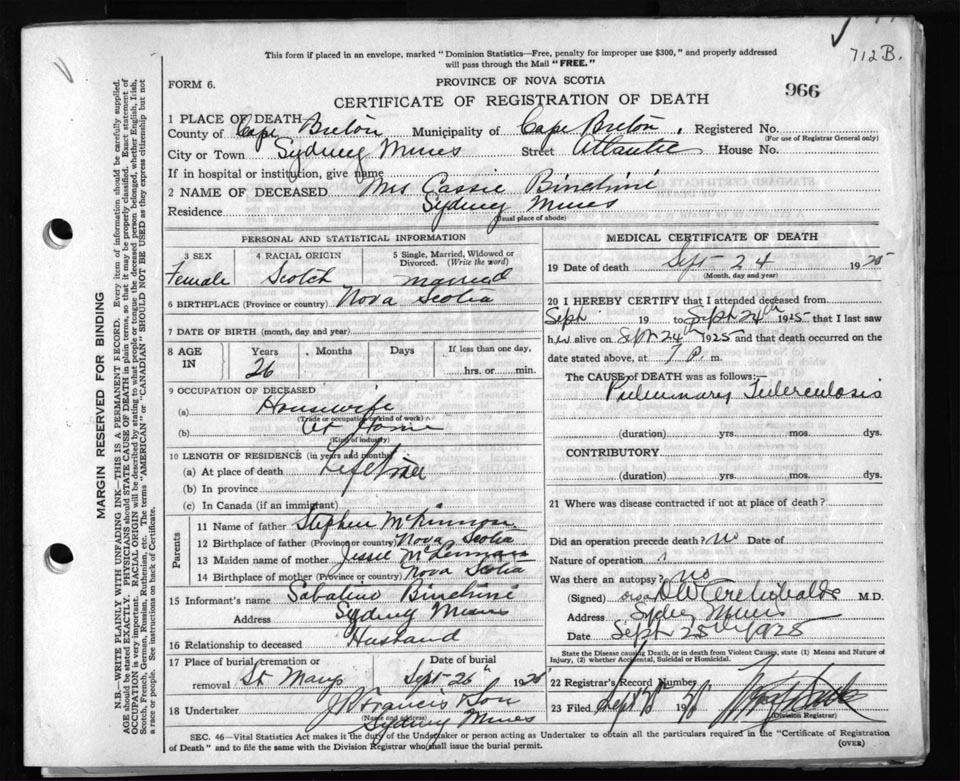 712B.
This form if placed in an envelope, marked "Dominion Statistics—Free, penalty for improper use $300," and properly addressed
will pass through the Mail "FREE."
FORM 6.
PROVINCE OF NOVA SCOTIA
966
CERTIFICATE OF REGISTRATION OF DEATH
1 PLACE OF DEATH
County of Cape Breton Municipality of Cape Breton. Registered No.
(For use of Registrar General only)
City or Town Sydney Mines Street Atlantic House No.
If in hospital or institution, give name
2 NAME OF DECEASED Mrs Cassie Binchini
Residence Sydney Mines
(Usual place of abode)
PERSONAL AND STATISTICAL INFORMATION
3 SEX Female
4 RACIAL ORIGIN Scotch
5 Single, Married, Widowed or Divorced. (Write the word) married
6 BIRTHPLACE (Province or country) Nova Scotia
7 DATE OF BIRTH (month, day and year)
8 AGE IN Years Months Days If less than one day,
26 hrs. or min.
9 OCCUPATION OF DECEASED
(a) Housewife
(Trade or occupation or kind of work)
(b) At Home
(Kind of industry)
10 LENGTH OF RESIDENCE (in years and months)
(a) At place of death Lifetime
(b) In province
(c) In Canada (if an immigrant)
Parents
11 Name of father Stephen McKinnon
12 Birthplace of father (Province or country) Nova Scotia
13 Maiden name of mother Jessie McLennan
14 Birthplace of mother (Province or country) Nova Scotia
15 Informant's name Sabatino Binchini
Address Sydney Mines
16 Relationship to deceased Husband
17 Place of burial, cremation or removal St Marys
Date of burial Sept 26th 1925
18 Undertaker J. Francis & Son
(Name and address)
Sydney Mines
MEDICAL CERTIFICATE OF DEATH
19 Date of death Sept 24 1925
(Month, day and year)
20 I HEREBY CERTIFY that I attended deceased from
Sept 19 to Sept 24th 1925 that I last saw
h alive on Sept 24th 1925 and that death occurred on the
date stated above, at 7 P. m.
The CAUSE of DEATH was as follows:—
Pulmonary Tuberculosis
(duration) yrs. mos. dys.
CONTRIBUTORY
(duration) yrs. mos. dys.
21 Where was disease contracted if not at place of death?
Did an operation precede death? no Date of
Nature of operation
Was there an autopsy? no
(Signed) Archibald M.D.
Address Mines
Date Sept 25th 1925
State the Disease causing Death, or in death from Violent Causes, state (1) Means and Nature of
Injury, (2) whether Accidental, Suicidal or Homicidal.
22 Registrar's Record Number
23 Filed Sept
(Division Registrar)
SEC. 46—Vital Statistics Act makes it the duty of the Undertaker or person acting as Undertaker to obtain all the particulars required in the "Certificate of Registration
of Death" and to file the same with the Division Registrar who shall issue the burial permit.
(OVER)
MARGIN RESERVED FOR BINDING
N.B.—WRITE PLAINLY WITH UNFADING INK—THIS IS A PERMANENT RECORD. Every item of information should be carefully supplied.
AGE should be stated EXACTLY. PHYSICIANS should STATE CAUSE OF DEATH in plain terms, so that it may be properly classified. Exact statement of
OCCUPATION is very important. RACIAL ORIGIN will be described by stating to what people or tongue the deceased person belonged, whether English, Irish,
Scotch, French, German, Russian, Ruthenian, etc. The terms "AMERICAN" or "CANADIAN" SHOULD NOT BE USED as they express citizenship but not
a race or people. See instructions on back of Certificate.